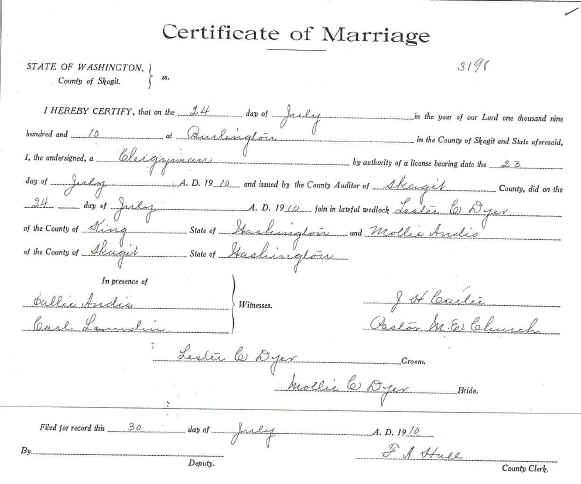 Certificate of Marriage
3198
STATE OF WASHINGTON, } ss.
County of Skagit.
I HEREBY CERTIFY, that on the 24 day of July in the year of our Lord one thousand nine
hundred and 10 at Burlington in the County of Skagit and State aforesaid,
I, the undersigned, a Clergyman by authority of a license bearing date the 23
day of July A. D. 1910 and issued by the County Auditor of Skagit County, did on the
24 day of July A. D. 1910 join in lawful wedlock Lester C Dyer
of the County of King State of Washington and Mollie Andis
of the County of Skagit State of Washington
In presence of
Callie Andis
Carl } Witnesses.
J H
Pastor M. E. Church
Lester C Dyer Groom.
Mollie C Dyer Bride.
Filed for record this 30 day of July A. D. 1910
By Deputy.
F A Hull County Clerk.